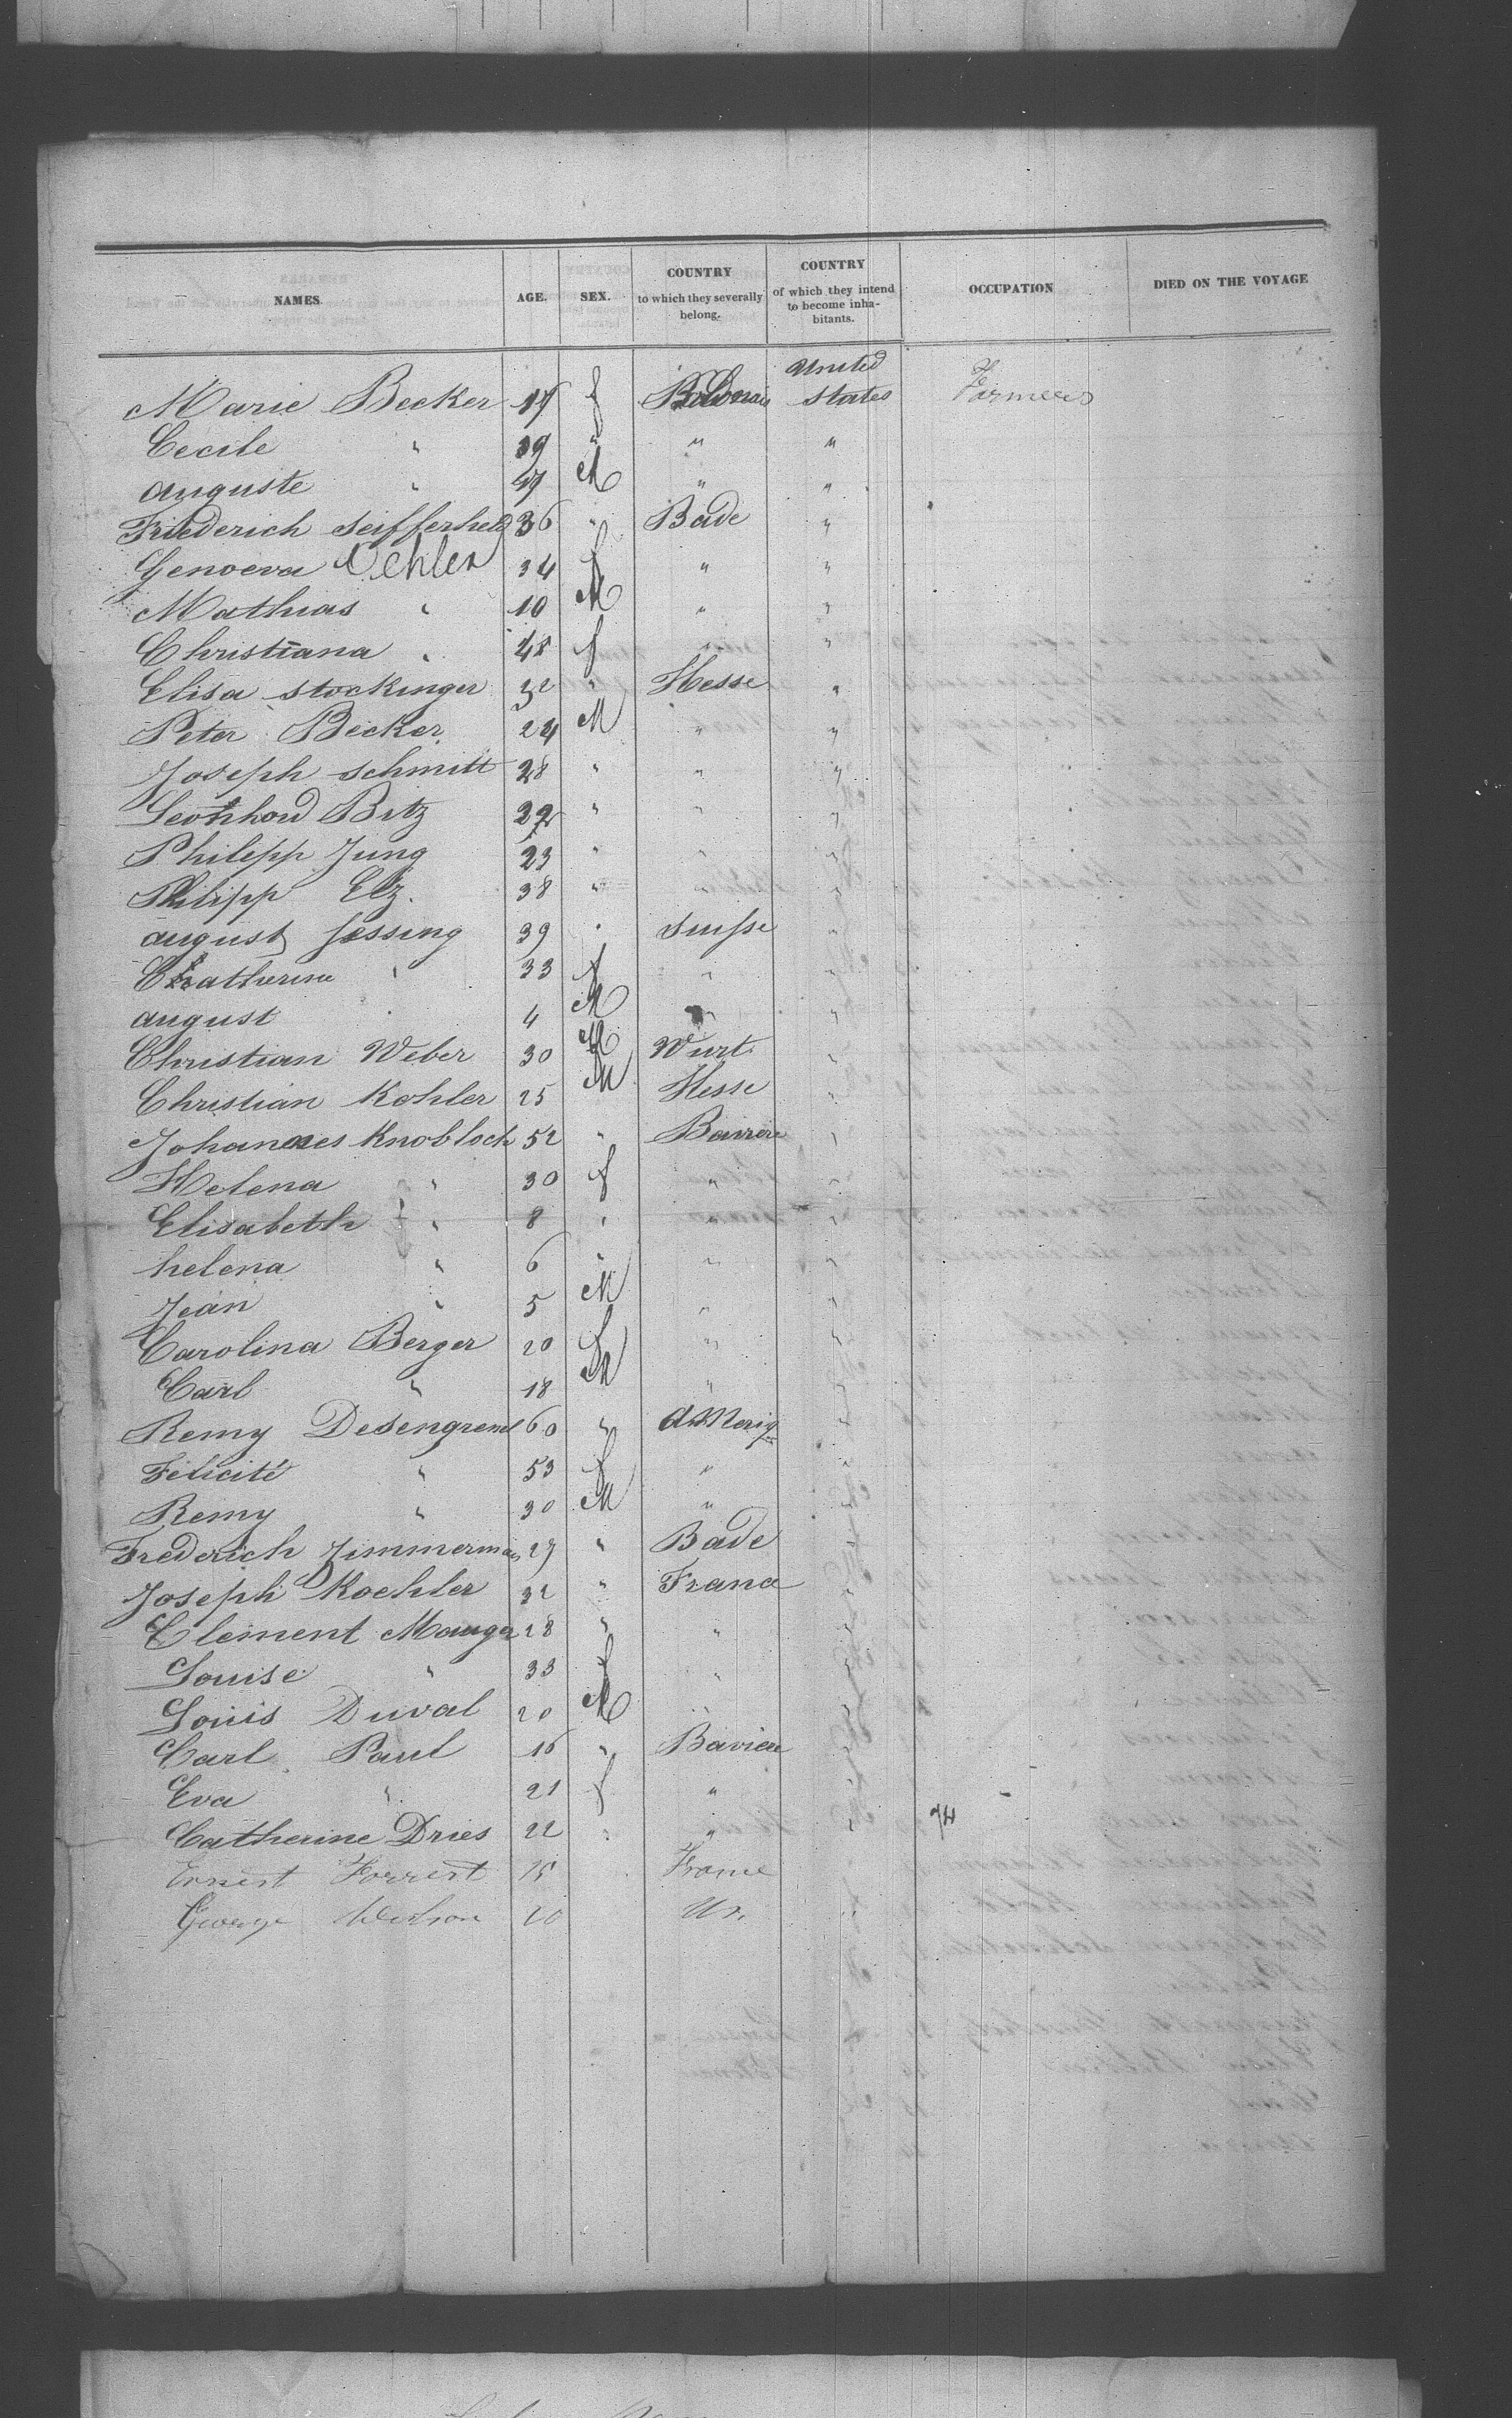 NAMES AGE. SEX. COUNTRY to which they severally belong. COUNTRY of which they intend to become inhabitants. OCCUPATION DIED ON THE VOYAGE
Marie Becker 17 f United States Farmers
Cecile " 39 " " "
Auguste " 47 M " "
Friederich Seifferheld 36 " Bade "
Genoeva Oehler 34 f " "
Mathias " 10 M " "
Christiana " 48 f " "
Elisa Stockinger 32 " Hesse "
Peter Becker 24 M " "
Joseph Schmitt 28 " " "
Bitz 22 " " "
Philipp Jung 23 " " "
Philipp Elz. 38 " " "
August Jessing 39 " Suisse "
Catherine " 33 f " "
August 4 M " "
Christian Weber 30 M Wurt. "
Christian Kohler 25 M Hesse "
Johannes Knobloch 52 " Baviere "
Helena " 30 f " "
Elisabeth " 8 " " "
helena " 6 " " "
Jean " 5 M " "
Carolina Berger 20 f " "
Carl " 18 M " "
Remy Desengremel 60 " "
Félicité " 53 f " "
Remy " 30 M " "
Frederich Zimmerman 27 " Bade "
Joseph Koehler 32 " France "
Clement Mauger 28 " " "
Louise " 33 f " "
Louis Duval 20 M " "
Carl Paul 16 " Baviere "
Eva " 21 f " "
Catherine Dries 22 " " " 74
Ernest Forrest 15 France
George 20